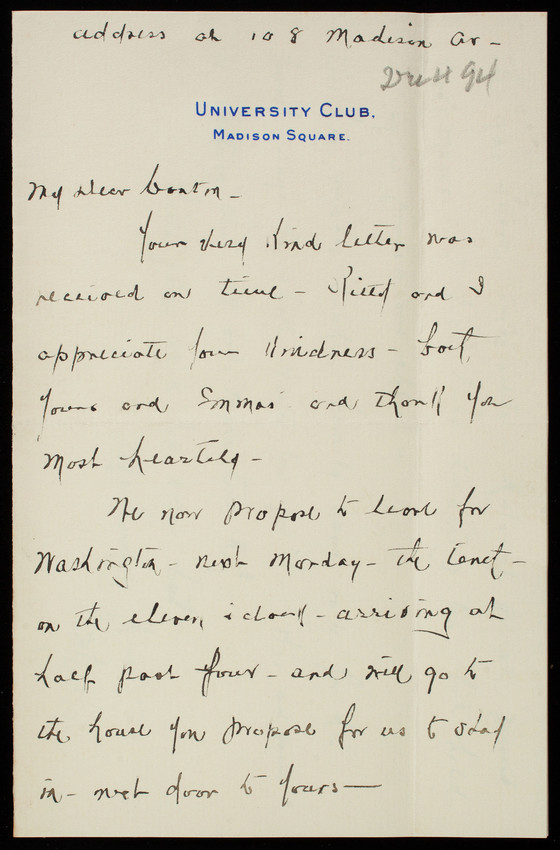 address at 108 Madison Av -
Dec 4 94
UNIVERSITY CLUB,
MADISON SQUARE.
My dear Couson -
Your very kind letter was
received on time - Kitty and I
appreciate your kindness - both
yours and Emmas and thank you
most heartely -
We now propose to leave for
Washington - next Monday - the tenth -
on the eleven o'clock - arriving at
half past four - and will go to
the house you propose for us to stay
in - next door to yours -